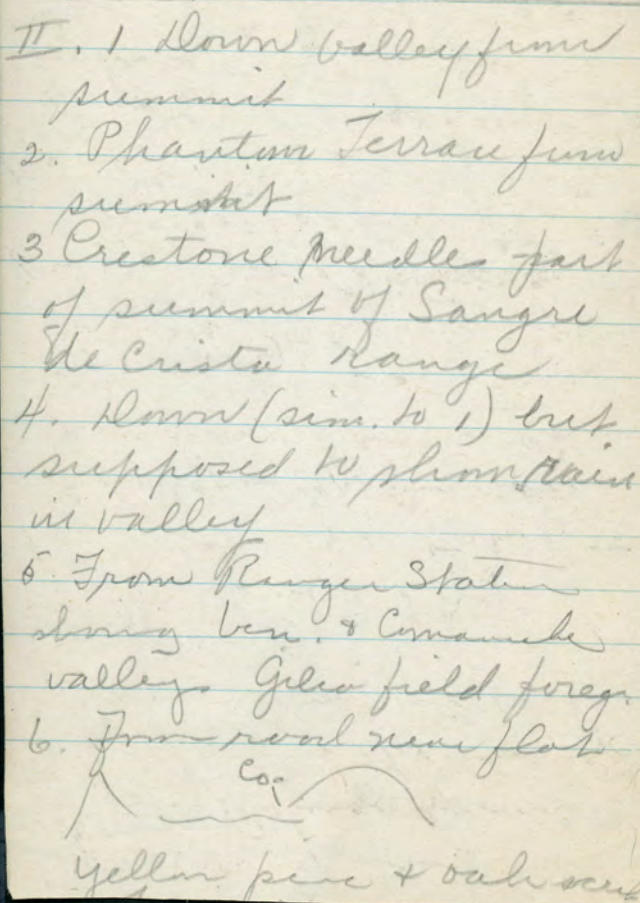 II. 1 Down valley from
summit
2. Phantom Terrace from
summit
3 Crestone Needles part
of summit of Sangre
de Cristo range
4. Down (sim. to 1) but
supposed to show rain
in valley
5 From Ranger Station
showing Ven. & Comanche
valleys field foreg.
6. From road near flat
Co.
Yellow pine & oak scrub